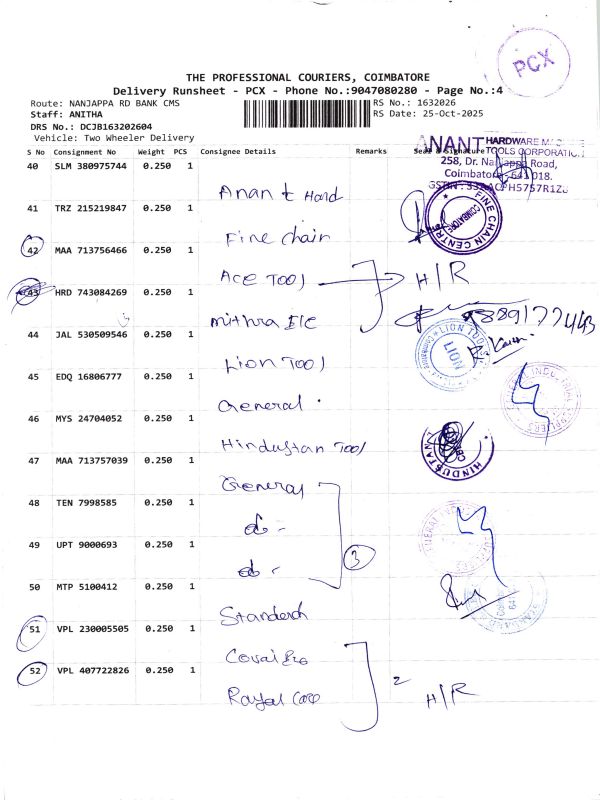 PCX
THE PROFESSIONAL COURIERS, COIMBATORE
Delivery Runsheet - PCX - Phone No.:9047080280 - Page No.:4
Route: NANJAPPA RD BANK CMS RS No.: 1632026
Staff: ANITHA RS Date: 25-Oct-2025
DRS No.: DCJB163202604
Vehicle: Two Wheeler Delivery
S No Consignment No Weight PCS Consignee Details Remarks Seal & Signature
ANANT HARDWARE
TOOLS CORPORATION
258, Dr. Nanjappa Road,
Coimbatore - 641 018.
40 SLM 380975744 0.250 1
Anant Hard
41 TRZ 215219847 0.250 1
FINE CHAIN CENTRE COIMBATORE
Fine chain
42 MAA 713756466 0.250 1
Ace Tool H/R
43 HRD 743084269 0.250 1
Mithra Ele
44 JAL 530509546 0.250 1
LION TOOLS
LION
Lion Tool
45 EDQ 16806777 0.250 1
General
46 MYS 24704052 0.250 1
Hindustan Tool
HINDUSTAN
47 MAA 713757039 0.250 1
General
48 TEN 7998585 0.250 1
do -
49 UPT 9000693 0.250 1
3
do -
50 MTP 5100412 0.250 1
Standerd
51 VPL 230005505 0.250 1
52 VPL 407722826 0.250 1
2
H/R